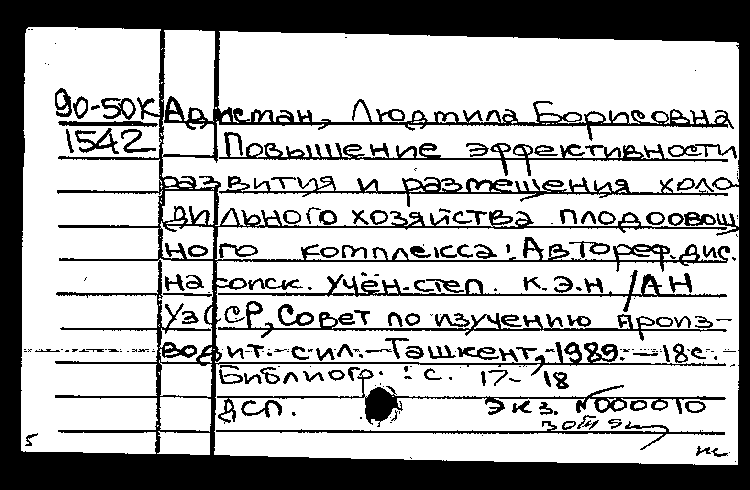 90-50К Адисман, Людмила Борисовна
1542 Повышение эффективности
развития и размещения холо
дильного хозяйства плодоовощ
ного комплекса: Автореф. дис.
на соиск. учён. степ. к.э.н. / АН
УзССР, Совет по изучению произ-
водит. сил. - Ташкент, 1989. - 18 с.
Библиогр.: с. 17-18
ДСП. экз. №000010
5